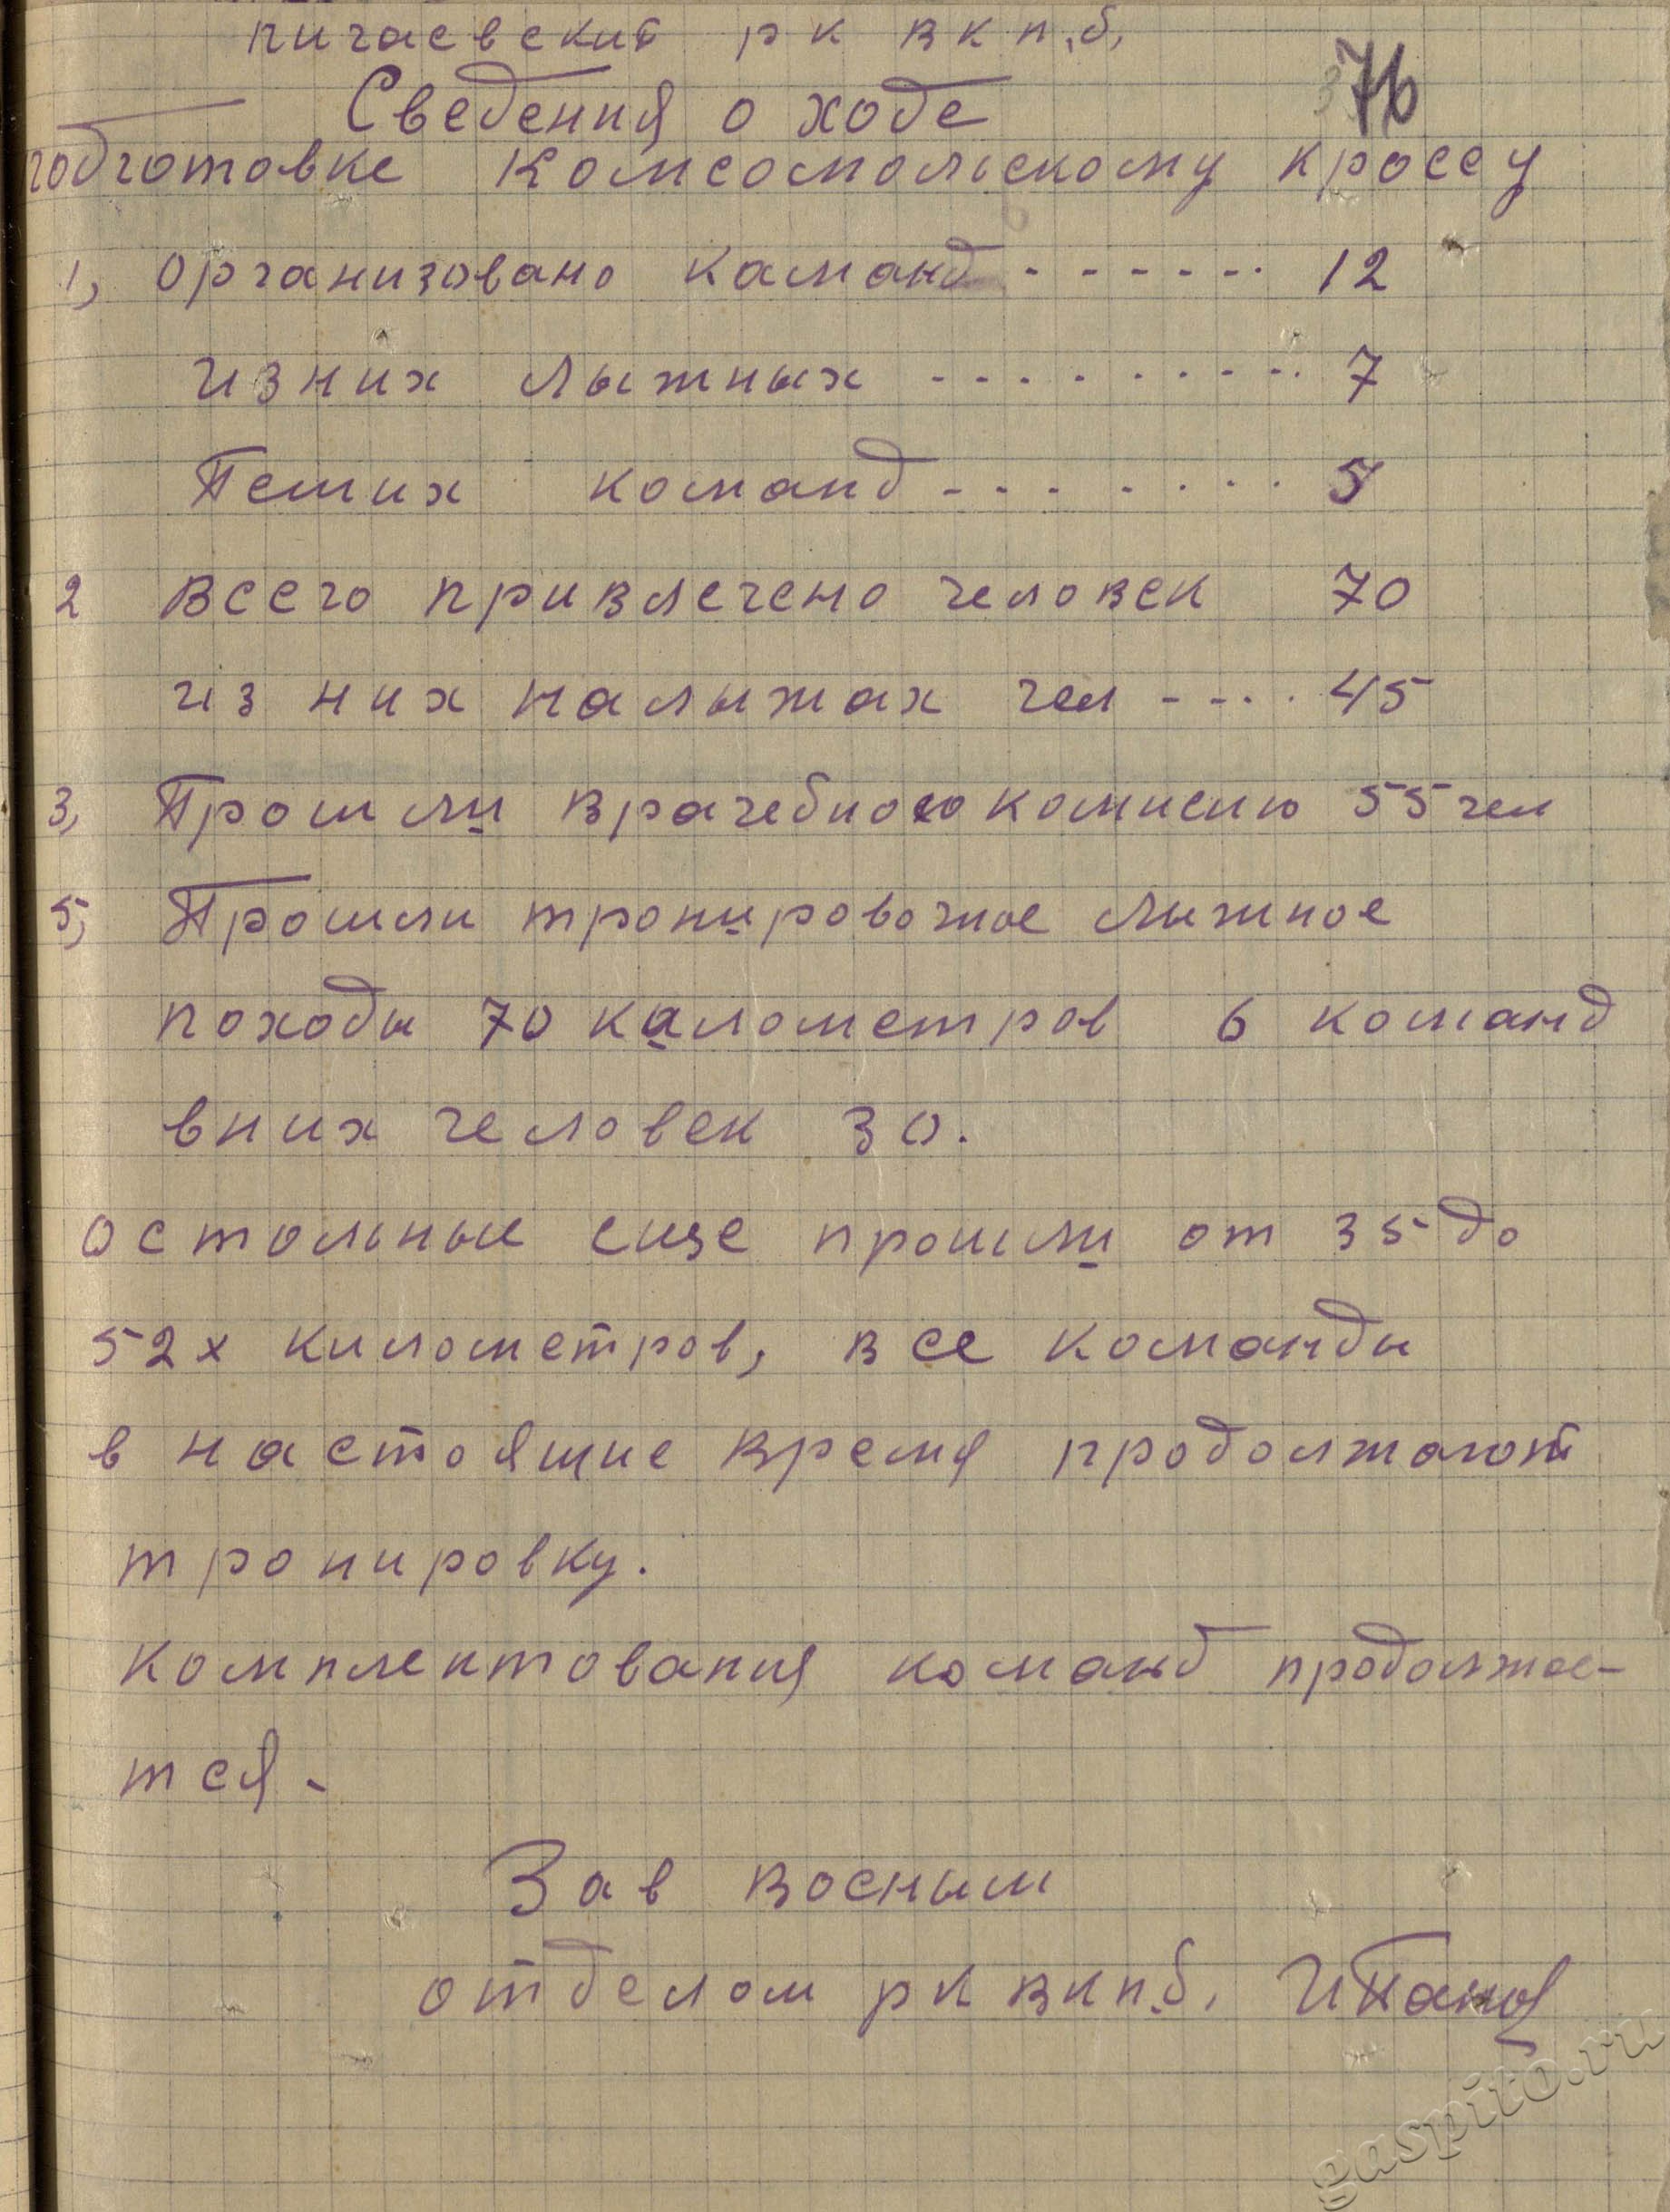 пичаевский рк вкп.б.
76
Сведения о ходе
подготовке комсомольскому кроссу
1, организовано каманд ------ 12
из них лыжных --------- 7
Пеших команд -------- 5
2 всего привлечено человек 70
из них на лыжах чел ---- 45
3, Прошли врачебною комисию 55 чел
5, Прошли тронировочное лыжное
походы 70 калометров 6 команд
в них человек 30.
остольные еще прошли от 35 до
52х километров, все команды
в настоящие время продолжают
тронировку.
комплектования команд продолжае-
тся.
Зав военым
отделом рк вкп.б.
gaspito.ru